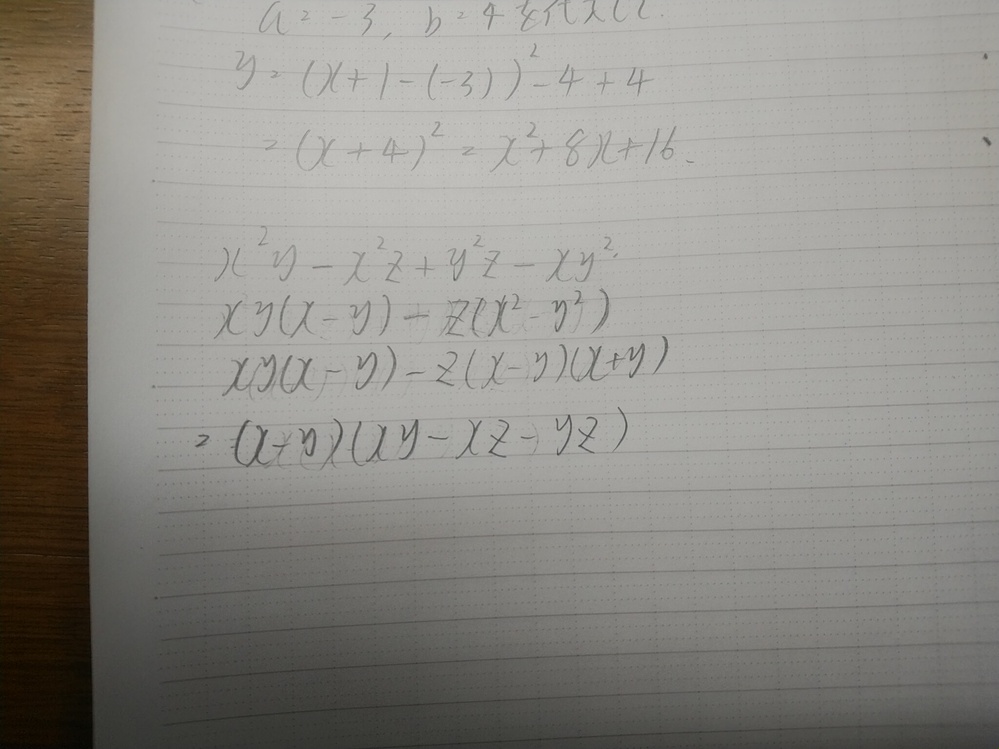 a = -3, b = 4を代入して
y = (x+1-(-3))²-4+4
= (x+4)² = x²+8x+16.
x²y - x²z + y²z - xy².
xy(x-y) - z(x²-y²)
xy(x-y) - z(x-y)(x+y)
= (x-y)(xy - xz - yz)